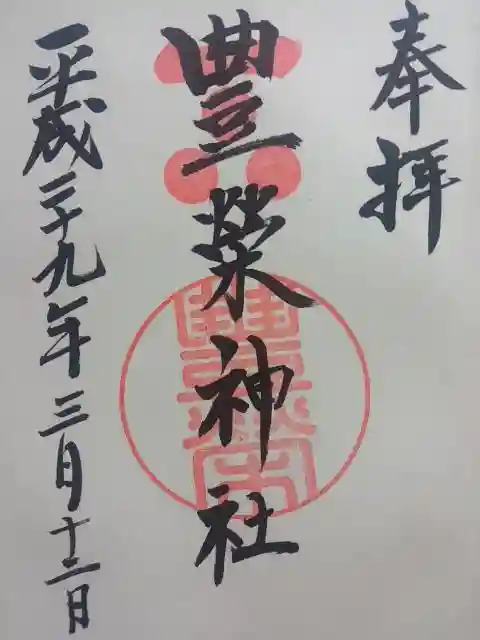 奉拝
豊栄神社
平成二十九年三月十二日